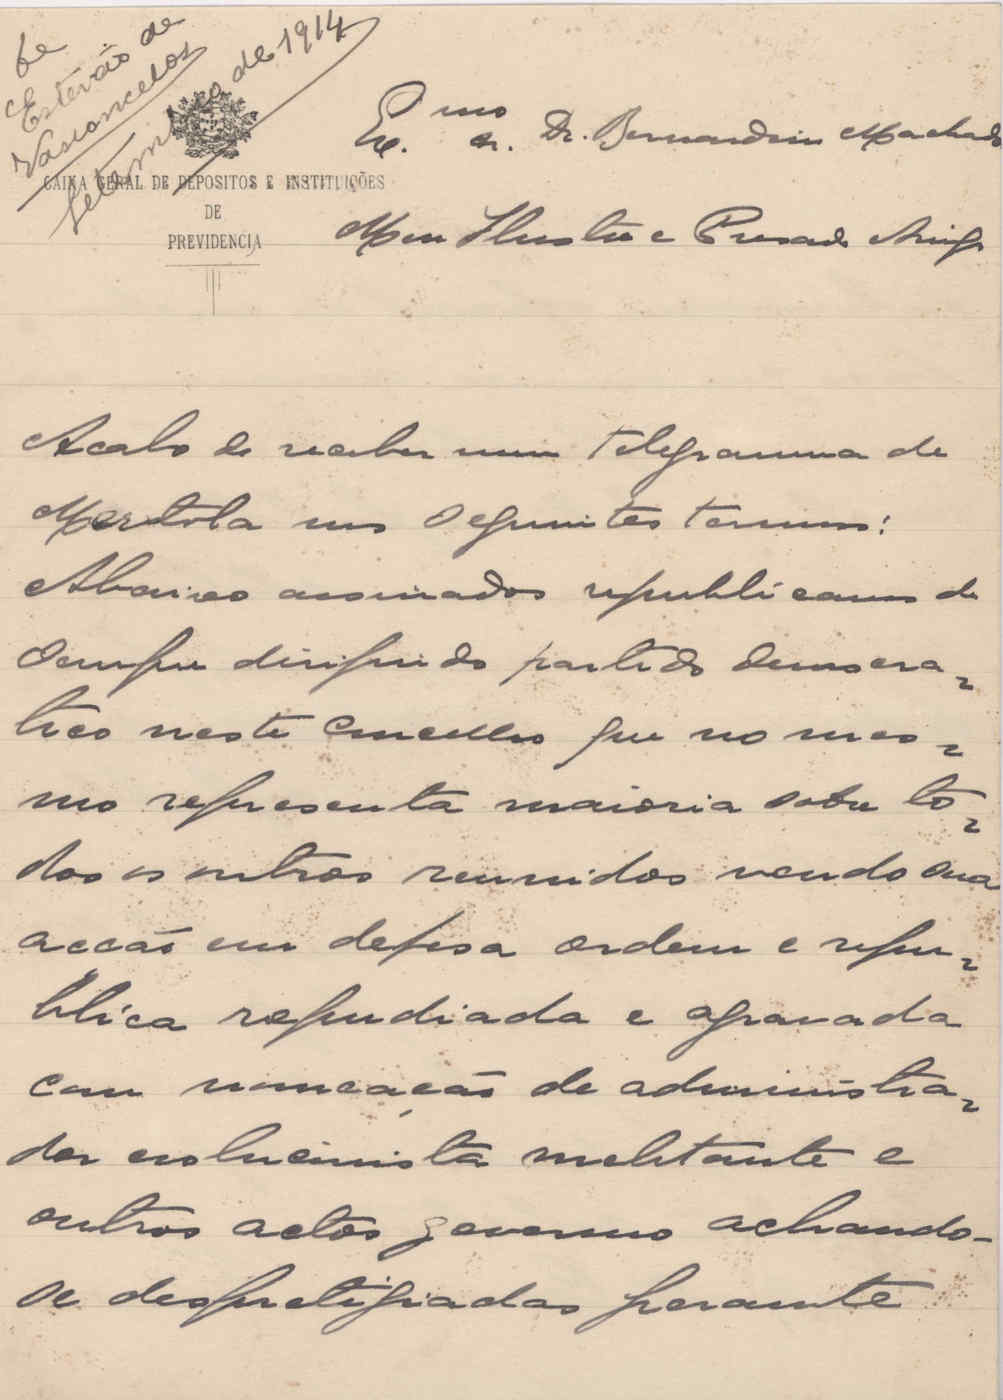 de
Estevão de
Vasconcelos
Setembro de 1914
CAIXA GERAL DE DEPOSITOS E INSTITUIÇÕES
DE
PREVIDENCIA
Ex.mo Sr. Dr. Bernardino Machado
Meu Illustre e Presado Amigo
Acabo de receber um telegramma de
Mertola nos seguintes termos:
Abaixo assinados republicanos de
sempre dirigindo partido democra-
tico neste concelho que no mes-
mo representa maioria sobre to-
dos os outros reunidos vendo sua
acção em defesa ordem e repu-
blica repudiada e agravada
com nomeação de administra-
dor evolucionista melitante e
outros actos governo achando-
se desprestigiados perante